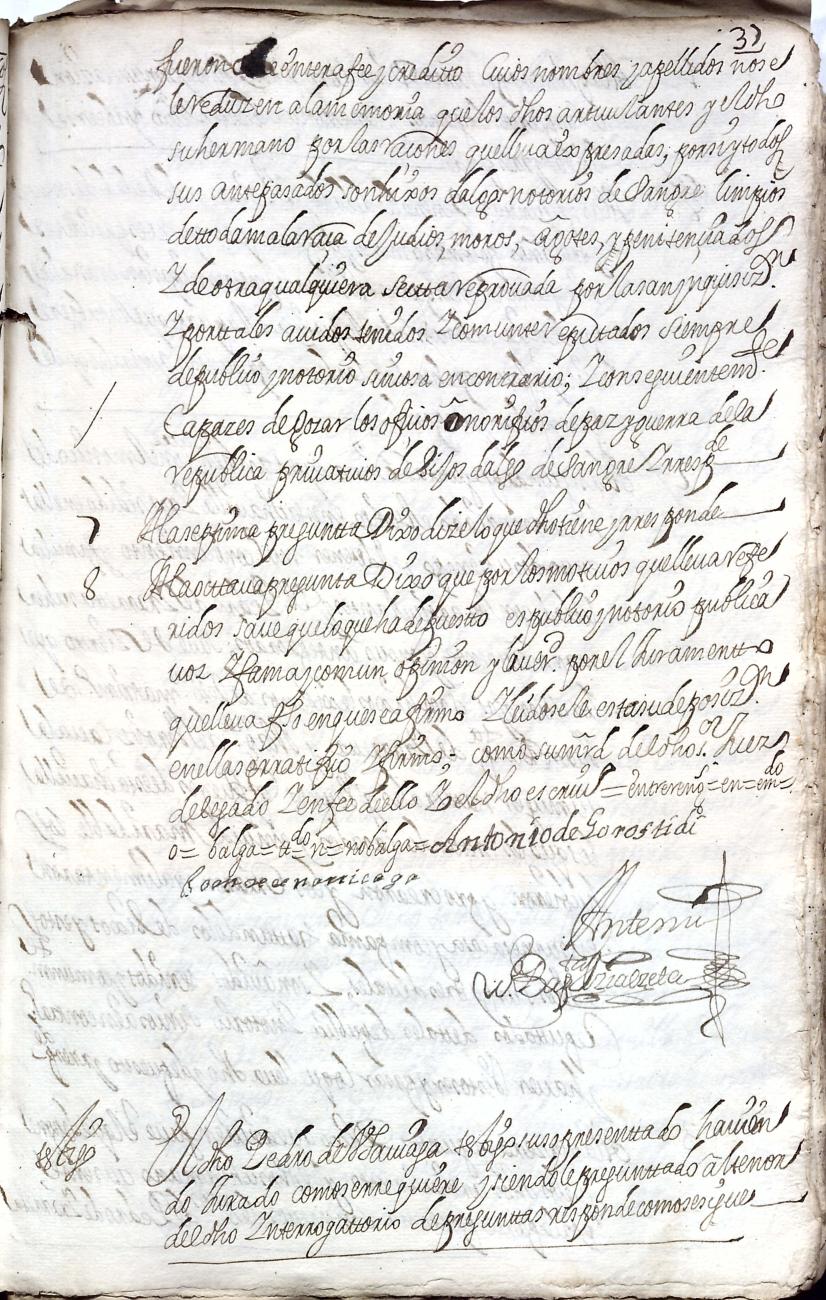 37
fueron de entera fee y creditto Cuios nombres y apellidos nose
le reduzen a la memoria que los dhos articulantes y el dho
su hermano por las raçones que lleva expresadas, por si y todos
sus antepasados son hixos dalgo notorios de Sangre limpios
de toda mala raça de Judios moros, agotes, y penitençiados
Y de otra qualquiera sectta reprovada por la san ynquisiz.on
Y por ttales avidos tenidos Y comunter reputados siempre
de publico y notorio sin cosa en contrario; Y consequientem.te
Capazes de Goçar los ofiçios onorifiços de paz y guerra de la
republica privativos de hijos dalgo de Sangre Y rresp.de
7 A la septima pregunta Dixo dize lo que dho tiene y responde
8 A la octtava pregunta Dixo que por los motivos que lleva refe
ridos save que lo que ha depuestto es publico y notorio publica
voz Y fama y comun opinion y la ver.d por el Juramentto
que lleva fho en que se afirmo Y leidosele esta su deposiz.on
en ella se rratifico Y firmo = como su mrd del dho s.or Juez
delegado Y en fee de ello Yo el dho escriv.o = entrereng.s = en = em.do =
o = balga = tt.do = n = no balga = Antonio de Gorostidi
Ante mi
tt.o 18 El dho Pedro de suso presenttado havien
do Jurado como se rrequiere y siendole preguntado a el tenor
del dho Ynterrogattorio de preguntas responde como se sigue